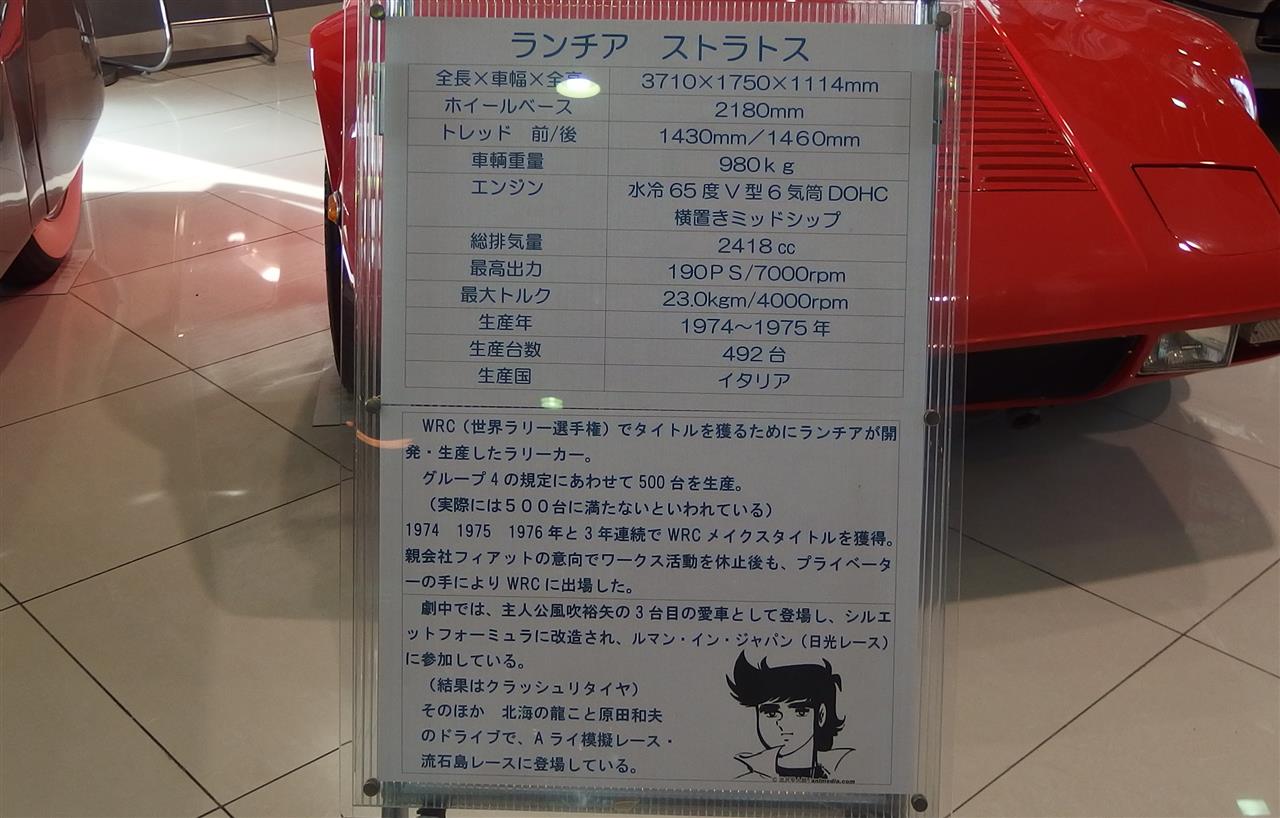 ランチア　ストラトス
全長×車幅×全高 3710×1750×1114mm
ホイールベース 2180mm
トレッド　前/後 1430mm／1460mm
車輌重量 980ｋｇ
エンジン 水冷65度Ｖ型6気筒DOHC
横置きミッドシップ
総排気量 2418㏄
最高出力 190ＰＳ/7000rpm
最大トルク 23.0kgm/4000rpm
生産年 1974～1975年
生産台数 492台
生産国 イタリア
WRC（世界ラリー選手権）でタイトルを獲るためにランチアが開
発・生産したラリーカー。
グループ4の規定にあわせて500台を生産。
（実際には５００台に満たないといわれている）
1974　1975　1976年と3年連続でWRCメイクスタイトルを獲得。
親会社フィアットの意向でワークス活動を休止後も、プライベータ
ーの手によりWRCに出場した。
劇中では、主人公風吹裕矢の3台目の愛車として登場し、シルエ
ットフォーミュラに改造され、ルマン・イン・ジャパン（日光レース）
に参加している。
（結果はクラッシュリタイヤ）
そのほか　北海の龍こと原田和夫
のドライブで、Aライ模擬レース・
流石島レースに登場している。